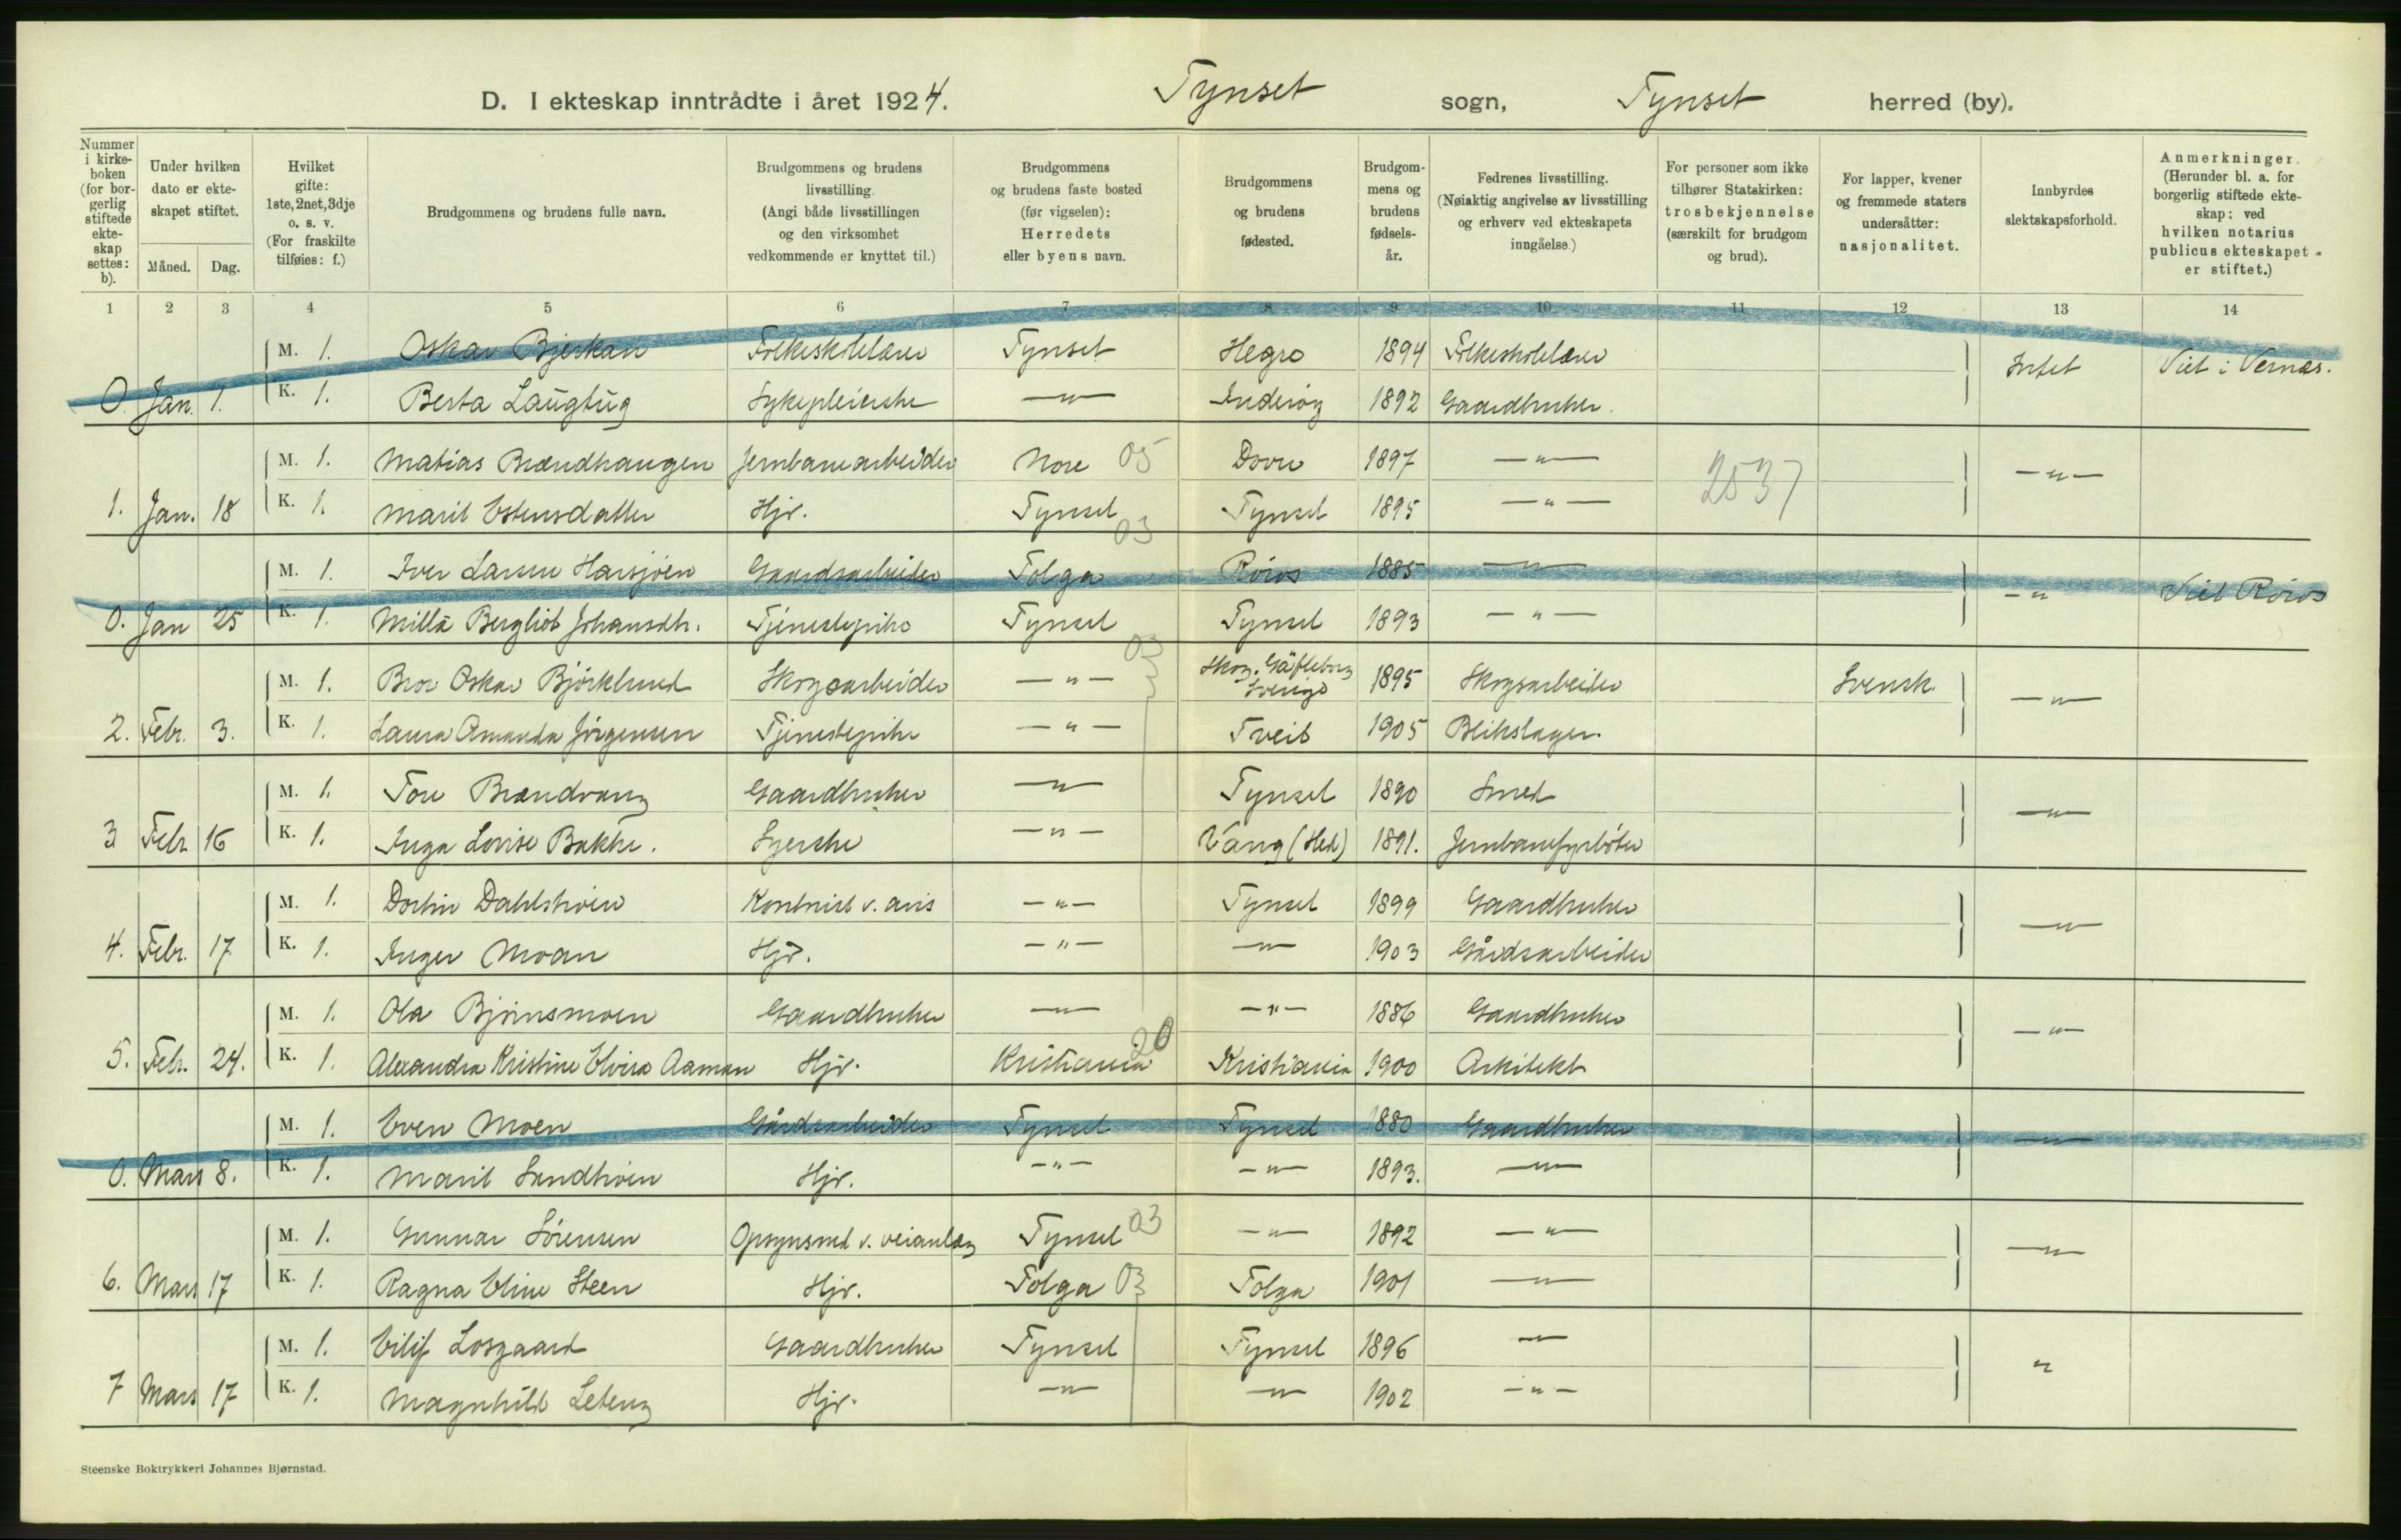 D. I ekteskap inntrådte i året 1924. Tynset sogn, Tynset herred (by).
Nummer i kirke-boken (for bor-gerlig stiftede ekte-skap settes: b).
Under hvilken dato er ekte-skapet stiftet.
Måned. Dag.
Hvilket gifte: 1ste, 2net, 3dje o. s. v. (For fraskilte tilføies: f.)
Brudgommens og brudens fulle navn.
Brudgommens og brudens livsstilling. (Angi både livsstillingen og den virksomhet vedkommende er knyttet til.)
Brudgommens og brudens faste bosted (før vigselen): Herredets eller byens navn.
Brudgommens og brudens fødested.
Brudgom-mens og brudens fødsels-år.
Fedrenes livsstilling. (Nøiaktig angivelse av livsstilling og erhverv ved ekteskapets inngåelse.)
For personer som ikke tilhører Statskirken: trosbekjennelse (særskilt for brudgom og brud).
For lapper, kvener og fremmede staters undersåtter: nasjonalitet.
Innbyrdes slektskapsforhold.
Anmerkninger. (Herunder bl. a. for borgerlig stiftede ekte-skap: ved hvilken notarius publicus ekteskapet er stiftet.)
1 2 3 4 5 6 7 8 9 10 11 12 13 14
M. 1. Oskar Bjerkan Folkeskolelærer Tynset Hegra 1894 Folkeskolelærer Intet Viet i Vernes.
0. Jan. 1. K. 1. Berta Laugtug Sykepleierske —"— Inderøy 1892 Gaardbruker.
M. 1. Matias Brændhaugen Jernbanearbeider Nore 05 Dovre 1897 —"— 2537 —"—
1. Jan. 18 K. 1. Marit Estensdatter Hjv. Tynset 03 Tynset 1895 —"—
M. 1. Iver Larsen Harsjøen Gaardsarbeider Tolga Röros 1885 —"— —"— Viet Röros
0. Jan 25 K. 1. Milla Bergliot Johansdtr. Tjenestepike Tynset Tynset 1893 —"—
M. 1. Bror Oskar Björklund Skogsarbeider —"— 03 Skog. Gäfleborg Sverige 1895 Skogsarbeider Svensk. —"—
2. Febr. 3. K. 1. Laura Amanda Jörgensen Tjenestepike —"— Tveit 1905 Blikslager.
M. 1. Tore Brændvang Gaardbruker —"— Tynset 1890 Smed —"—
3 Febr 16 K. 1. Inga Lovise Bakke. Syerske —"— Vang (Hed) 1891. Jernbanefyrbøter
M. 1. Dortin Dahlshøien Kontorist v. avis —"— Tynset 1899 Gaardbruker —"—
4. Febr. 17 K. 1. Inger Moan Hjv. —"— —"— 1903 Gårdsarbeider
M. 1. Ola Bjørnsmoen Gaardbruker —"— —"— 1886 Gaardbruker —"—
5. Febr. 24. K. 1. Alexandra Kristine Elvira Aaman Hjv. Kristiania 20 Kristiania 1900 Arkitekt
M. 1. Even Moen Gårdsarbeider Tynset Tynset 1880 Gaardbruker —"—
0. Mars 8. K. 1. Marit Sandhøien Hjv. —"— —"— 1893. —"—
M. 1. Gunnar Sörensen Opsynsmd v. veianlæg Tynset 03 —"— 1892 —"— —"—
6. Mars 17 K. 1. Ragna Eline Steen Hjv. Tolga 03 Tolga 1901 —"—
M. 1. Eilif Losgaard Gaardbruker Tynset Tynset 1896 —"— "
7 Mars 17 K. 1. Magnhild Seteng Hjv. —"— —"— 1902 —"—
Steenske Boktrykkeri Johannes Bjørnstad.